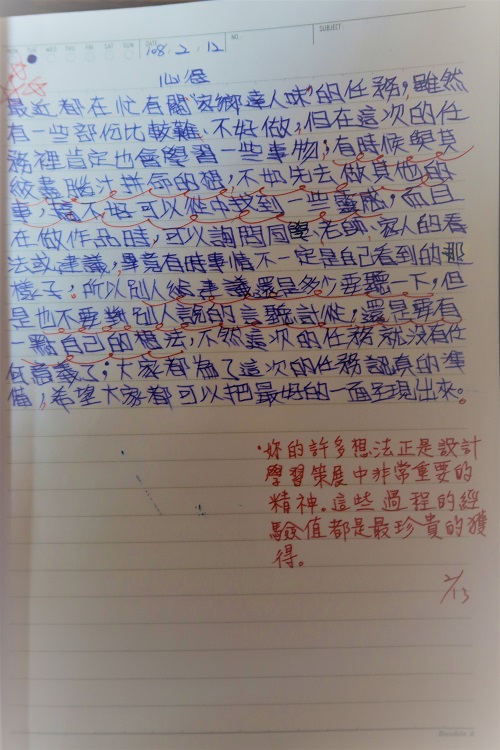 DATE 108.2.12
NO.
SUBJECT
心得
最近都在忙有關"家鄉達人味"的任務,雖然
有一些部份比較難、不好做,但在這次的任
務裡肯定也會學習一些事物;有時候與其
絞盡腦汁拼命的想,不如先去做其他的
事,搞不好可以從中找到一些靈感,而且
在做作品時,可以詢問同學、老師、家人的看
法或建議,畢竟有時事情不一定是自己看到的那
樣子,所以別人給建議還是多少要聽一下,但
是也不要對別人說的言聽計從,還是要有
一點自己的想法,不然這次的任務就沒有任
何意義了;大家都為了這次的任務認真的準
備,希望大家都可以把最好的一面呈現出來。
妳的許多想法正是設計
學習策展中非常重要的
精神。這些過程的經
驗值都是最珍貴的獲
得。
2/13